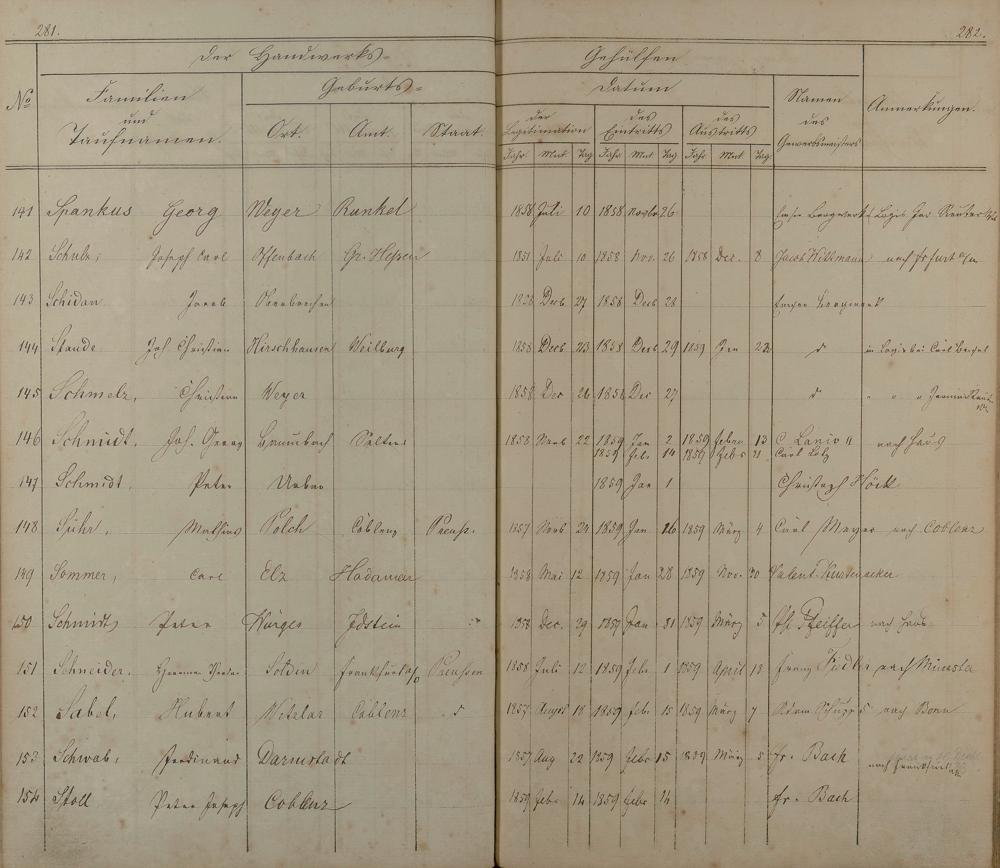 281. 282.
Der Handwerks- Gehülfen
No Familien und Taufnamen. Geburts- Datum Namen des Gewerbsmeisters Anmerkungen.
Ort. Amt. Staat. der Legitimation des Eintritts des Austritts
Jahr Mnt. Tag Jahr Mnt Tag Jahr Mnt Tag
141 Spankus Georg Weyer Runkel 1858 Juli 10 1858 Novbr 26 Logis
142 Joseph Carl Offenbach Gr. Hessen 1851 Juli 10 1858 Nov. 26 1858 Dec. 8 Jacob Willmann nach
143 Schidan Jacob 1858 Decb 27 1858 Decb 28
144 Staude Joh Christian Hirschhausen Weilburg 1858 Decb 23 1858 Decb 29 1859 Jan 22 d in Logis bei Carl
145 Schmelz, Christian Weyer 1858 Dec 26 1858 Dec 27 d " " "
146 Schmidt, Joh. Georg Selters 1858 22 1859 Jan 2 1859 Febr 13 C Lanio " nach Haus
1859 Feb. 14 1859 Febr 21 Carl
147 Schmidt, Peter 1859 Jan 1 Christoph Höck
148 Mathias Polch Coblenz Preuss. 1857 24 1859 Jan 26 1859 März 4 Carl Mayer nach Coblenz
149 Sommer, Carl Elz Hadamar 1858 Mai 12 1859 Jan 28 1859 Nov. 20 Valent.
150 Schmidt, Peter Würges Idstein 1858 Dec. 29 1859 Jan 31 1859 März 5 Ph. Pfeiffer nach Haus
151 Schneider, Soldin Frankfurt a/o Preussen 1858 Juli 12 1859 Febr 1 1859 April 18 Franz nach Münster
152 Sabel, Hubert Wetzlar Coblenz d 1857 August 18 1859 Febr 15 1859 März 7 nach Bonn
153 Schwab, Ferdinand Darmstadt 1857 Aug 22 1859 Febr 15 1859 März 5 Fr. Bach nach Frankfurt
154 Stoll Peter Joseph Coblenz 1859 Febr 14 1859 Febr 14 Fr. Bach